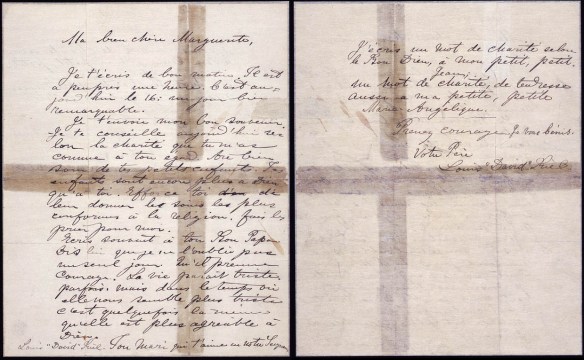 Ma bien chère Marguerite,
Je t'écris de bon matin. Il est
à peu près une heure. C'est au-
jourd'hui le 16: un jour bien
remarquable.
Je t'envoie mon bon souvenir.
Je te conseille aujourd'hui se-
lon la charité que tu m'as
connue à ton égard. Aie bien
Soin de tes petits enfants. Tes
enfants sont encore plus à Dieu
qu'à toi. Efforce toi de
leur donner les soins les plus
conformes à la religion. fais les
prier pour moi.
Ecris souvent à ton Bon Papa
Dis lui que je ne l'oublie pas
un seul jour. Qu'il prenne
courage. La vie parait triste
parfois: mais dans le temps où
elle nous semble plus triste
c'est quelquefois la même
qu'elle est plus agréable à
Dieu.
Louis "David" Riel. Ton Mari qui t'aime en Notre Seigneur
J'écris un mot de charité selon
le Bon Dieu, à mon petit, petit
Jean;
un mot de charité, de tendresse
aussi à ma petite, petite
Marie-Angélique.
Prenez courage. Je vous bénis.
Votre Père
Louis "David" Riel